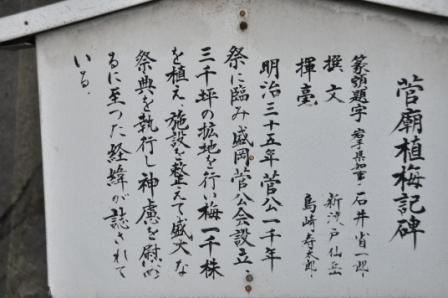 菅廟植梅記碑
篆額題字 岩手県知事 石井省一郎
撰文 新渡戸仙岳
揮毫 島崎寿太郎
明治三十五年菅公一千年
祭に臨み盛岡菅公会設立
三千坪の拡地を行い梅一千株
を植え、施設を整えて盛大な
祭典を執行し神慮を慰め
るに至つた経緯が誌されて
いる。